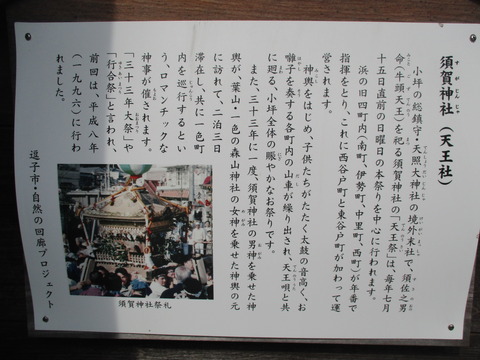 須賀神社(天王社)
小坪の総鎮守・天照大神社の境外末社で、須佐之男
命(牛頭天王)を祀る須賀神社の「天王祭」は、毎年七月
十五日直前の日曜日の本祭りを中心に行われます。
浜の旧四町内(南町、伊勢町、中里町、西町)が年番で
指揮をとり、これに西谷戸町と東谷戸町が加わって運
営されます。
神輿をはじめ、子供たちがたたく太鼓の音高く、お
囃子を奏する各町内の山車が繰り出され、天王唄と共
に廻る、小坪全体の賑やかなお祭りです。
また、三十三年に一度、須賀神社の男神を乗せた神
輿が、葉山・一色の森山神社の女神を乗せた神輿の元
に訪れて、二泊三日
滞在し、共に一色町
内を巡行するとい
う、ロマンチックな
神事が催されます。
「三十三年大祭」や
「行合祭」と言われ、
前回は、平成八年
(一九九六)に行わ
れました。
須賀神社祭礼
逗子市・自然の回廊プロジェクト